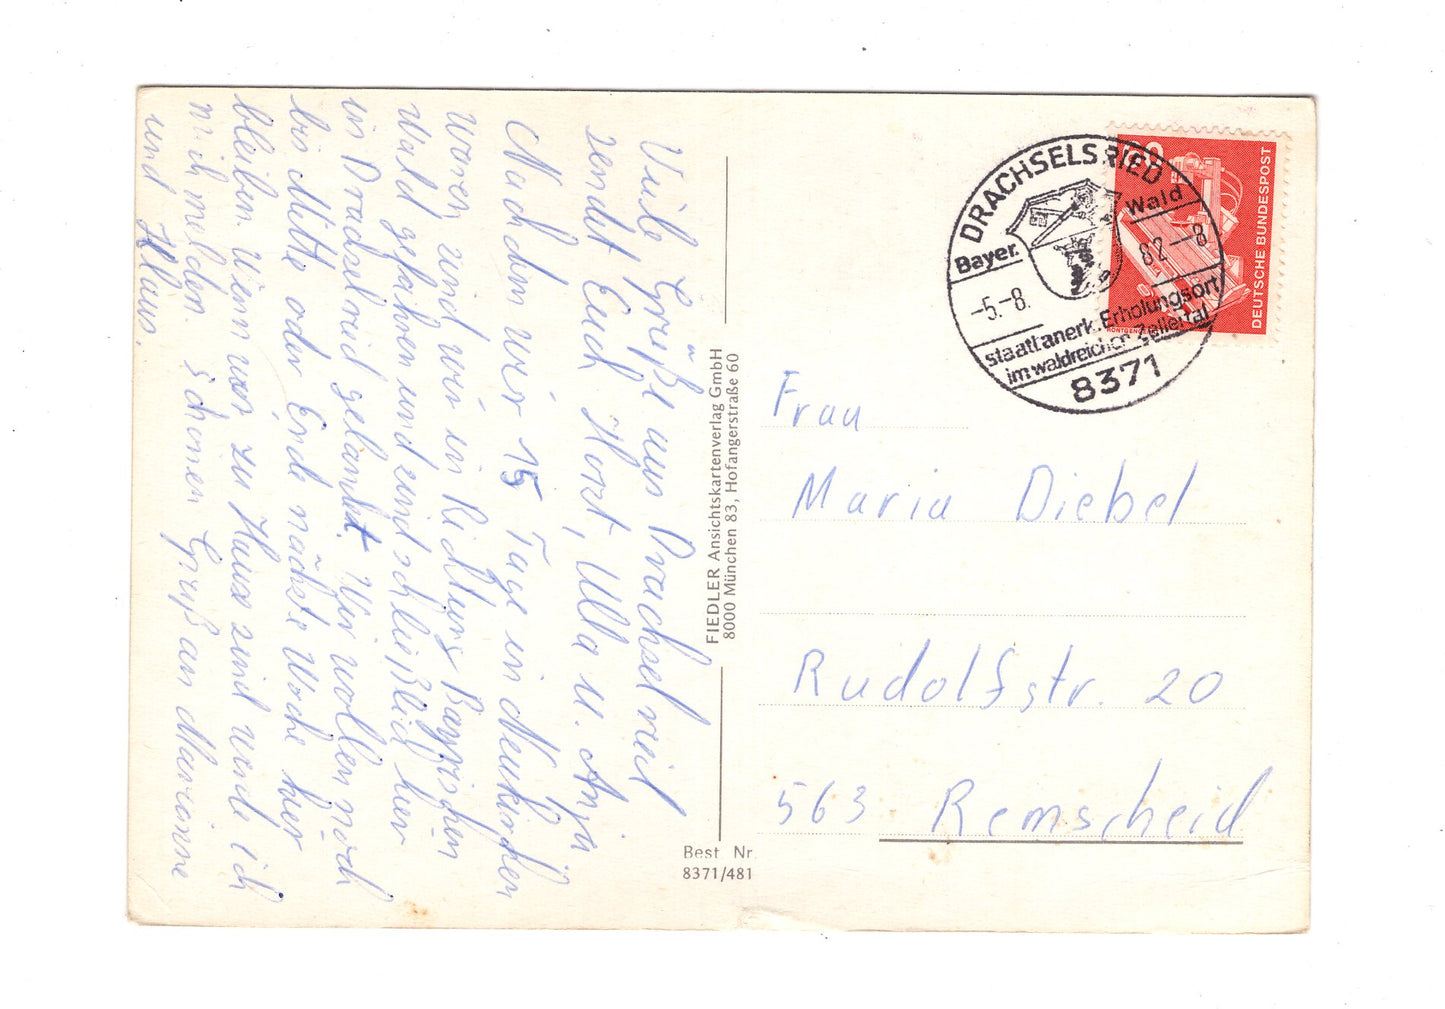 Viele Grüße aus Drachselried
sendet Euch Horst, Ulla u. Anja
Nachdem wir 15 Tage in Neukirchen
waren sind wir in Richtung Bayrischen
Wald gefahren und sind schließlich hier
in Drachselried gelandet. Wir wollen noch
bis Mitte oder Ende nächste Woche hier
bleiben. Wenn wir zu Hause sind werde ich
mich melden. Schönen Gruß an Marianne
und Klaus.
FIEDLER Ansichtskartenverlag GmbH
8000 München 83, Hofangerstraße 60
Best. Nr.
8371/481
DRACHSELSRIED
Bayer. Wald
-5.-8. 82--8
staatl. anerk. Erholungsort
im waldreichen Zellertal
8371
DEUTSCHE BUNDESPOST
Frau
Maria Diebel
Rudolfstr. 20
563 Remscheid